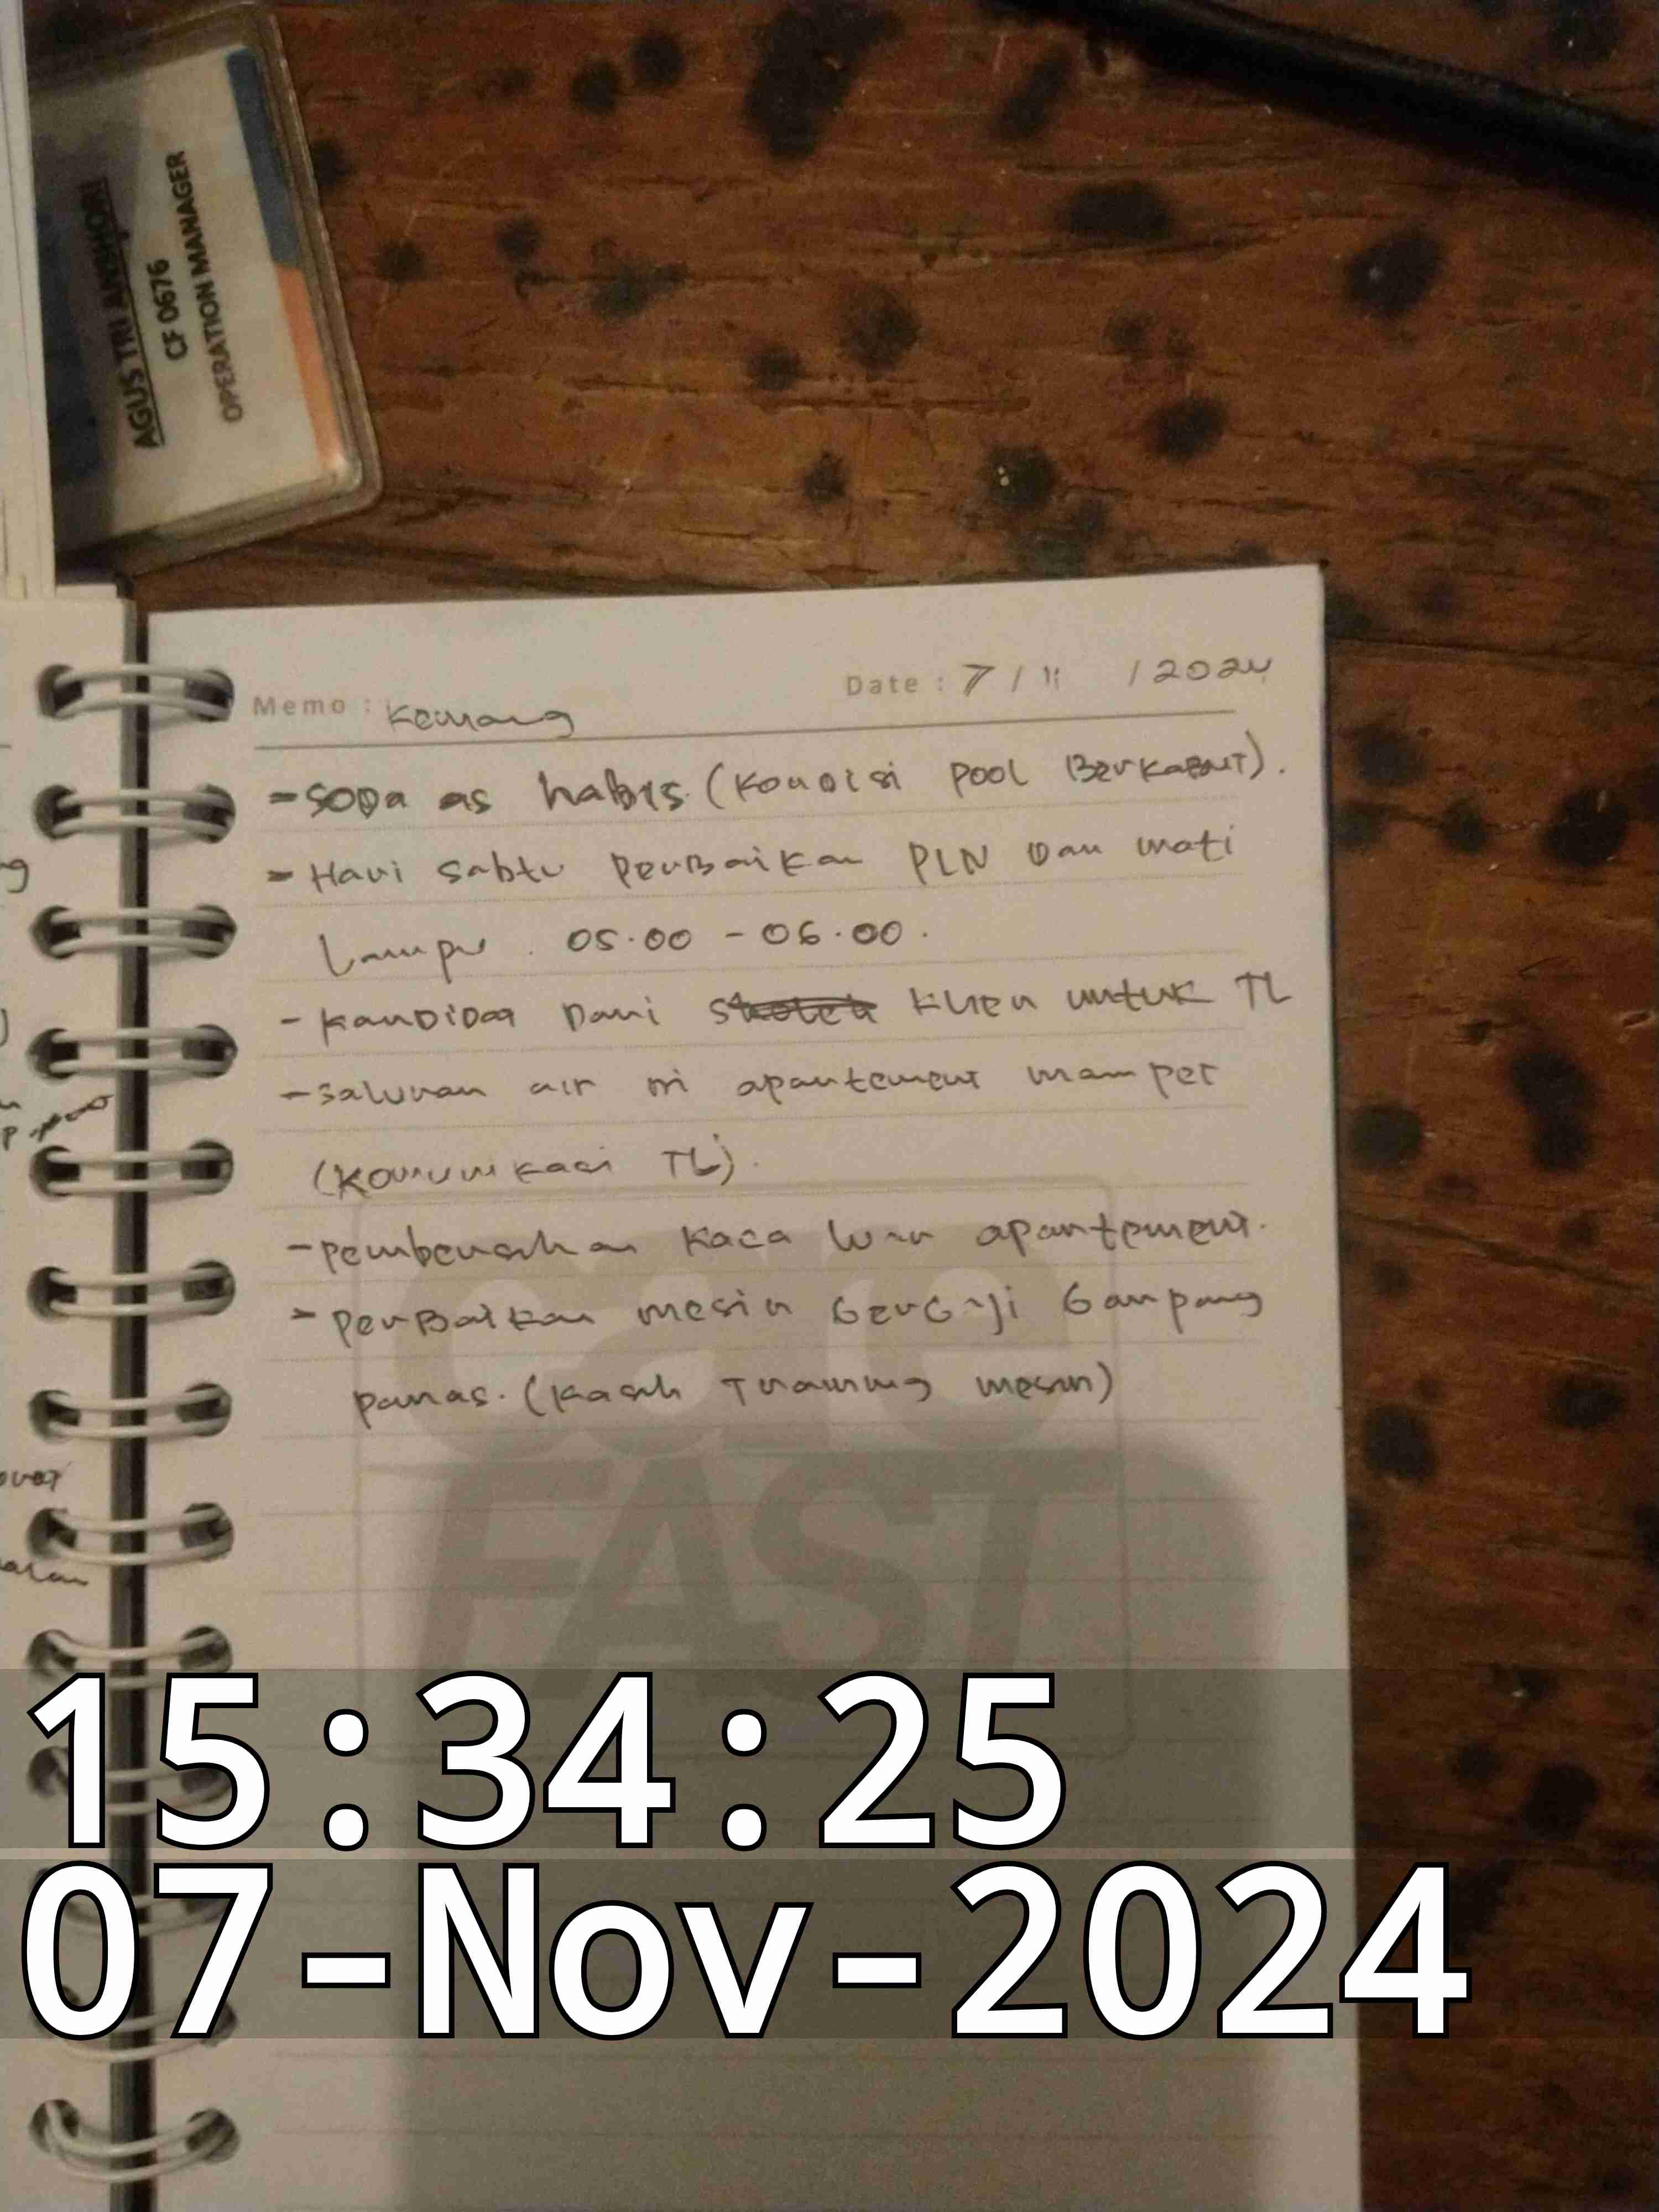 AGUS TRI ANSHORI
CF 0676
OPERATION MANAGER
Memo : Kemang
Date : 7 / 11 / 2024
- Soda as habis (Kondisi Pool Berkabut).
- Hari Sabtu Perbaikan PLN Dan mati
Lampu . 05.00 - 06.00 .
- Kandidat Dari Klien untuk TL
- Saluran air di apartement mampet
(Komunikasi TL) .
- Pembersihan Kaca luar apartement.
- Perbaikan mesin Gergaji Gampang
panas. (Kasih Training mesin)
care
FAST
15:34:25
07-Nov-2024